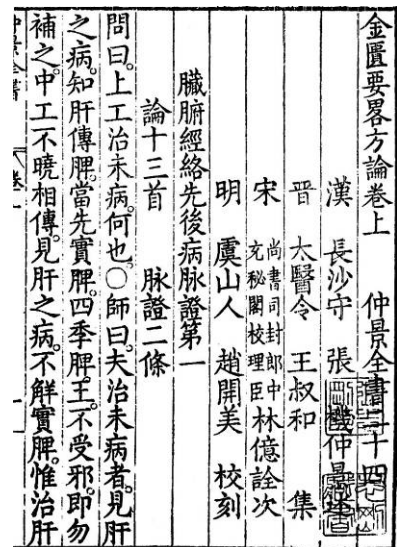 金匱要畧方論卷上 仲景全書二十四
漢 長沙守 張機仲景述
晉 太醫令 王叔和 集
宋 尚書司封郎中充秘閣校理臣林億詮次
明 虞山人 趙開美 校刻
臟腑經絡先後病脉證第一
論十三首 脉證二條
問曰。上工治未病。何也。○師曰。夫治未病者。見肝
之病。知肝傳脾。當先實脾。四季脾王。不受邪。即勿
補之。中工不曉相傳。見肝之病。不解實脾。惟治肝